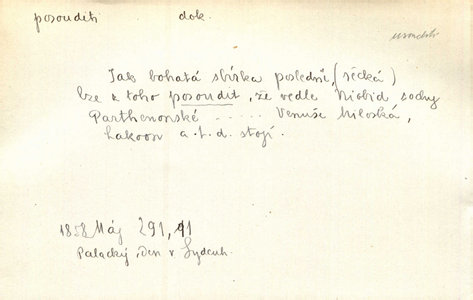 posouditi dok.
usouditi
Jak bohatá sbírka poslední, (řecká)
lze z toho posoudit, že vedle Niobid, sochy
Parthenonské ..... Venuše Miloská,
Lakoon a.t.d. stojí.
1858 Máj 291,
Palacký, Den v Sydenh.